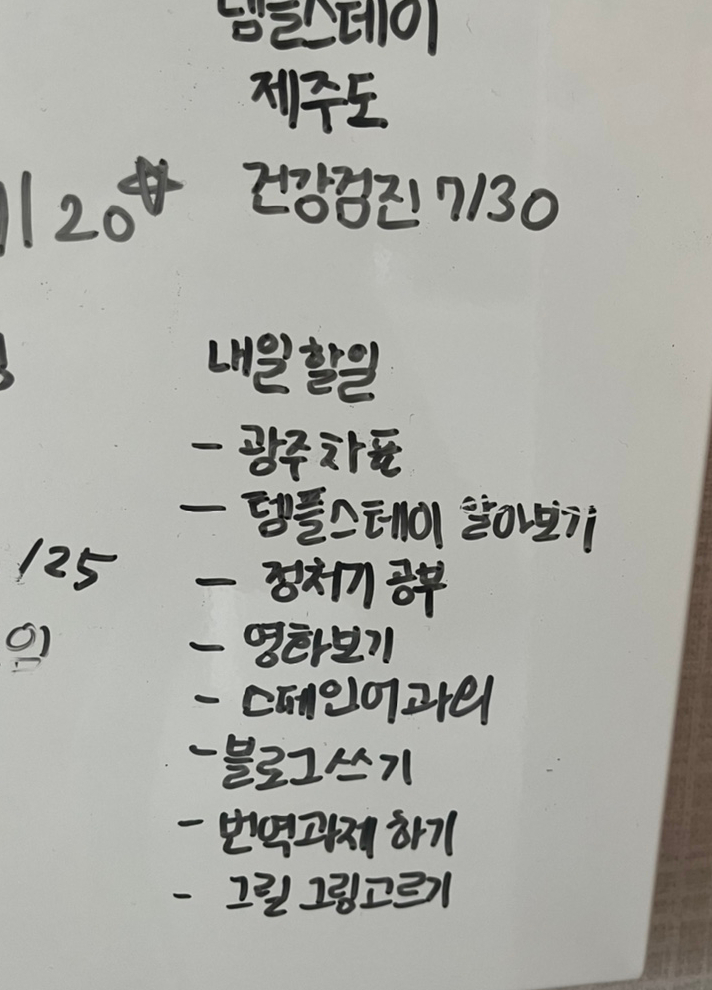 템플스테이
제주도
120
건강검진 7/30
내일 할일
- 광주 차표
- 템플스테이 알아보기
/25
- 정처기 공부
- 영화보기
- 스페인어과외
- 블로그쓰기
- 번역과제 하기
- 그릴 그림고르기